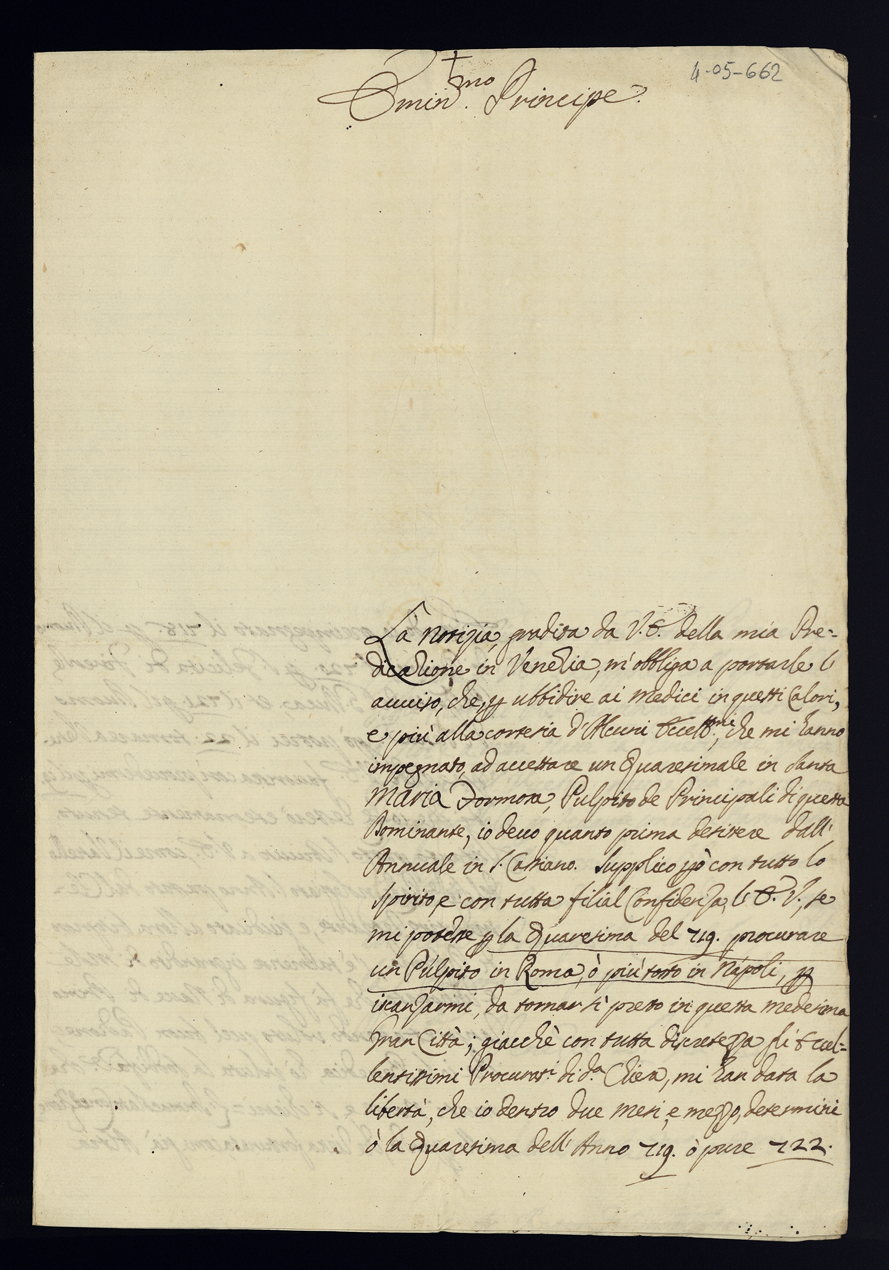 4-05-662
Emin.mo Principe.
La notizia, gradita da V. E. della mia Pre-
dicazione in Venezia, m'obbliga a portarle l'
auuiso, che, p ubbidire ai Medici in questi Calori,
e più alla cortesia d'Alcuni Eccell.mi, che mi hanno
impegnato, ad accettare un Quaresimale in Santa
Maria Formosa, Pulpito de Principali di questa
Dominante, io deuo quanto prima desistere dall'
Annuale in S. Casiano. Supplico pò con tutto lo
Spirito, e con tutta filial Confidenza, l' E. V., se
mi potesse p la Quaresima del 719. procurare
un Pulpito in Roma, ò più tosto in Napoli, p
iscansarmi, da tornar sì presto in questa medesima
gran Città; giacchè con tutta discretezza gli Eccel-
lentissimi Procurat.i di d.a Chiesa, mi han data la
libertà, che io dentro due mesi, e mezzo, determini
ò la Quaresima dell' Anno 719. ò pure 722.